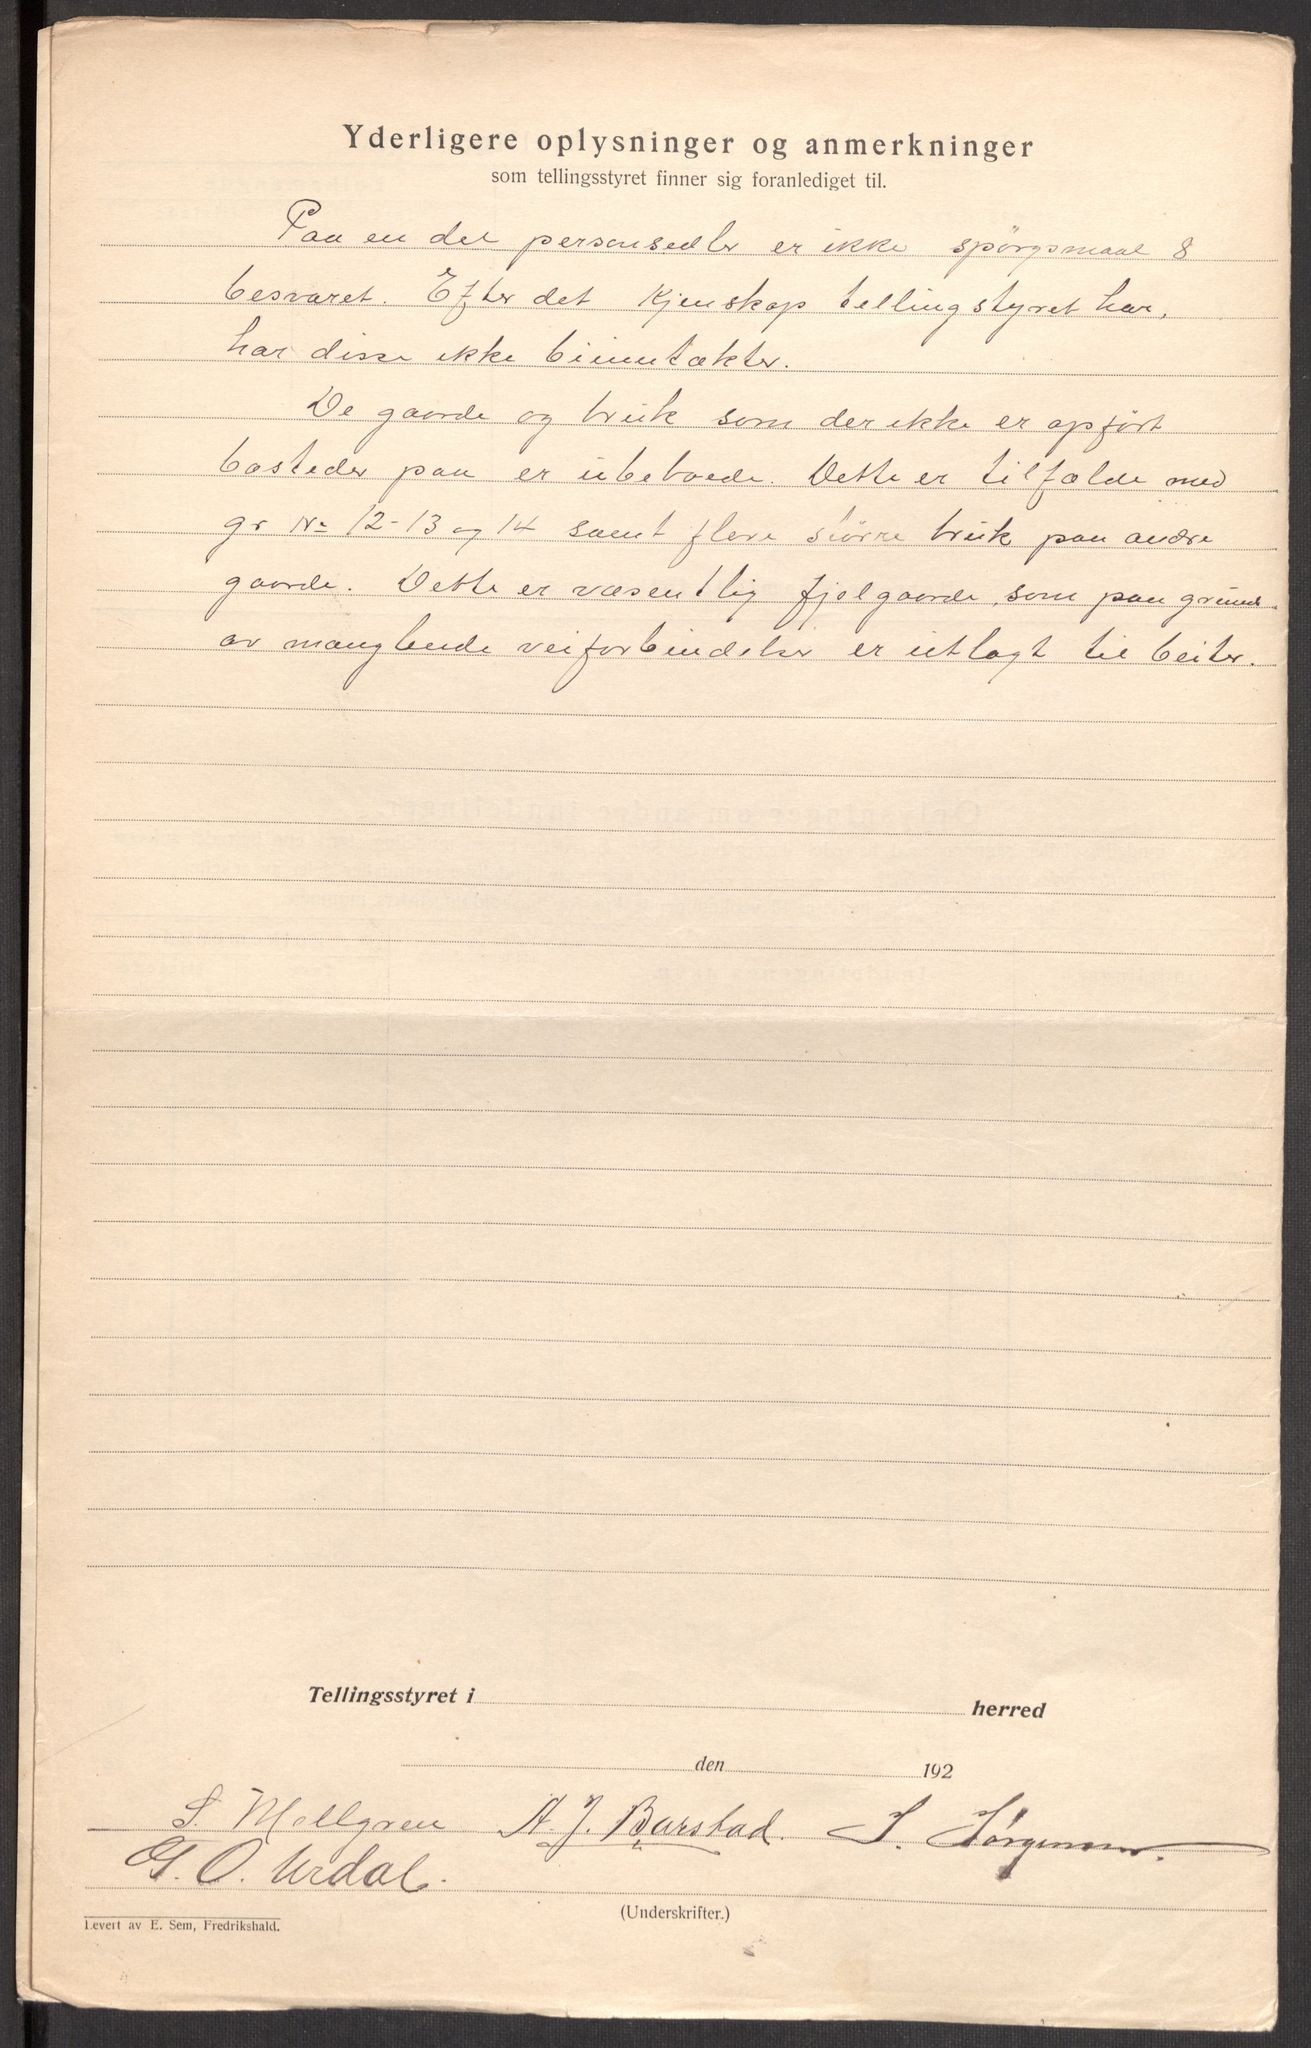 Yderligere oplysninger og anmerkninger
som tellingsstyret finner sig foranlediget til.
Paa en del personsedler er ikke spørgsmaal 8
besvaret. Efter det kjenskap tellingstyret har,
har disse ikke biinntækter.
De gaarde og bruk som der ikke er opført
bosteder paa er ubeboede. Dette er tilfælde med
gr No 12-13 og 14 samt flere større bruk paa andre
gaarde. Dette er væsentlig fjelgaarde, som paa grund
av manglende veiforbindelser er utlagt til beiter.
Tellingsstyret i herred
den 192
S. Mellgren A. J. Barstad. S. Jørgensen.
G. O. Urdal.
(Underskrifter.)
Levert av E. Sem, Fredrikshald.